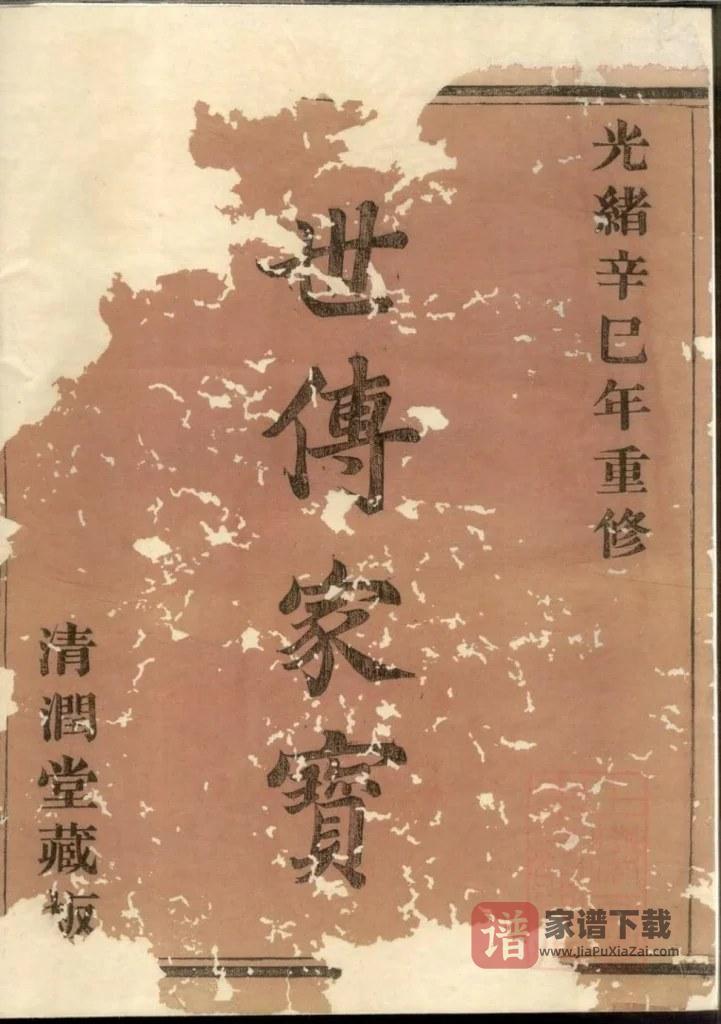 光緒辛巳年重修
世傳家寶
清潤堂藏板
谱 家谱下载
www.JiaPuXiaZai.com